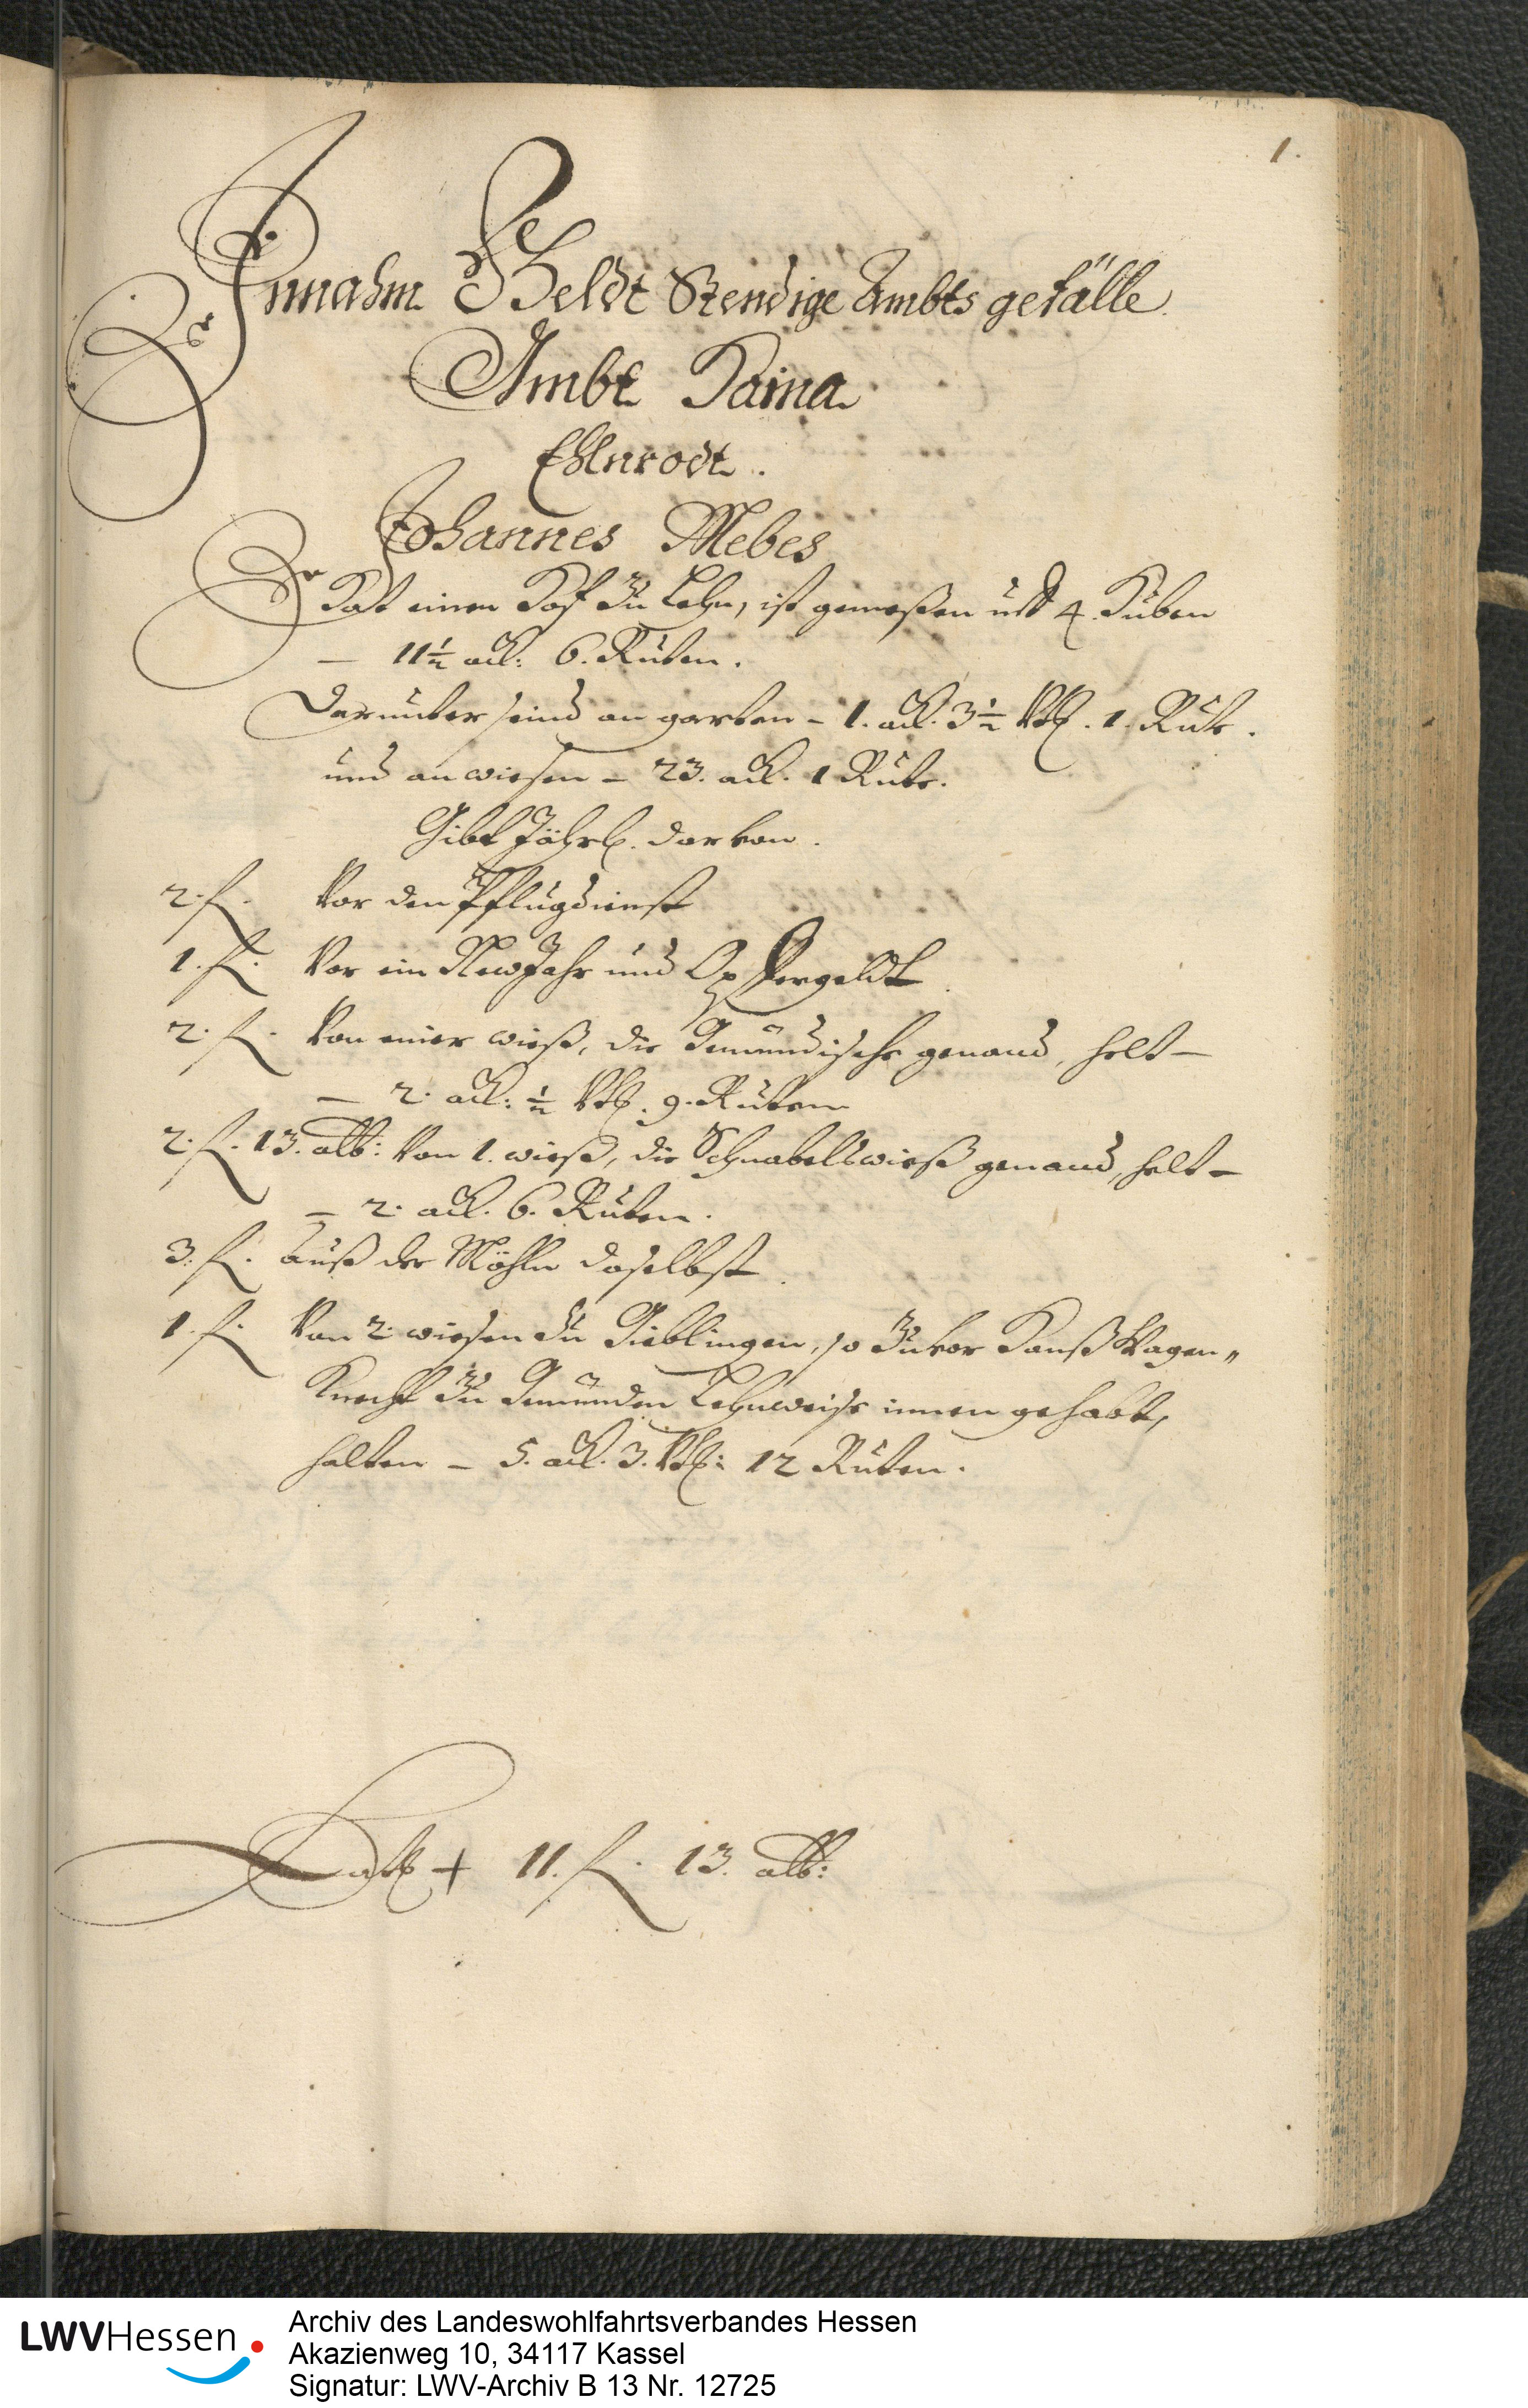 1.
Innahm Geldt Stendige Ambts gefälle
Ambt Haina
Ellnrodt.
Johannes Mebes
Hat einen Hof zu Lehn, ist gemeßen uff 4. Huben
– 11½ ack: 6. Ruten.
Darunter seind an garten – 1. ack. 3½ Vtl. 1. Rute.
und an wiesen – 23. ack. 1 Rute.
Gibt Jährl. darvon.
2. fl. Vor den Pflugdienst
1. fl. Vor ein New Jahr und Opffergeldt
2. fl. Von einer wieß, die Gemündische genand, helt –
– 2. ack: ½ Vtl. 9. Ruten
2. fl. 13. alb: Von 1. wieß, die Schnabelswieß genand, helt –
– 2. ack. 6. Ruten.
3. fl. auß der Möhln daselbst.
1. fl. Von 2. wiesen zu Sieblingen, so zuvor Hanß Wagen„
Knecht zu Gemünden Lehnweise innen gehabt,
halten – 5. ack. 3. Vtl: 12 Ruten.
Lat + 11. fl. 13. alb:
LWVHessen
Archiv des Landeswohlfahrtsverbandes Hessen
Akazienweg 10, 34117 Kassel
Signatur: LWV-Archiv B 13 Nr. 12725